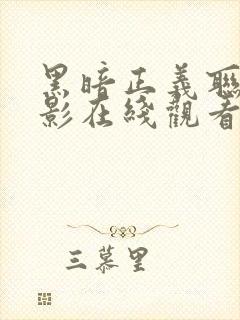 黑暗正義聯
影在綫觀看
三慕里